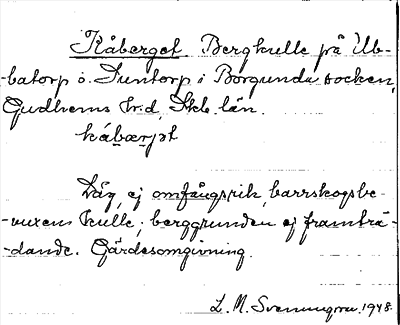 Kåberget Bergkulle på Ub-
-batorp o. Suntorp i Borgunda socken,
Gudhems hr.d, Skb. län.
kábærjət
Låg, ej omfångsrik, barrskogsbe-
-vuxen kulle; berggrunden ej framträ-
-dande. Gärdesomgivning.
L. M. Svenungsson. 1948.